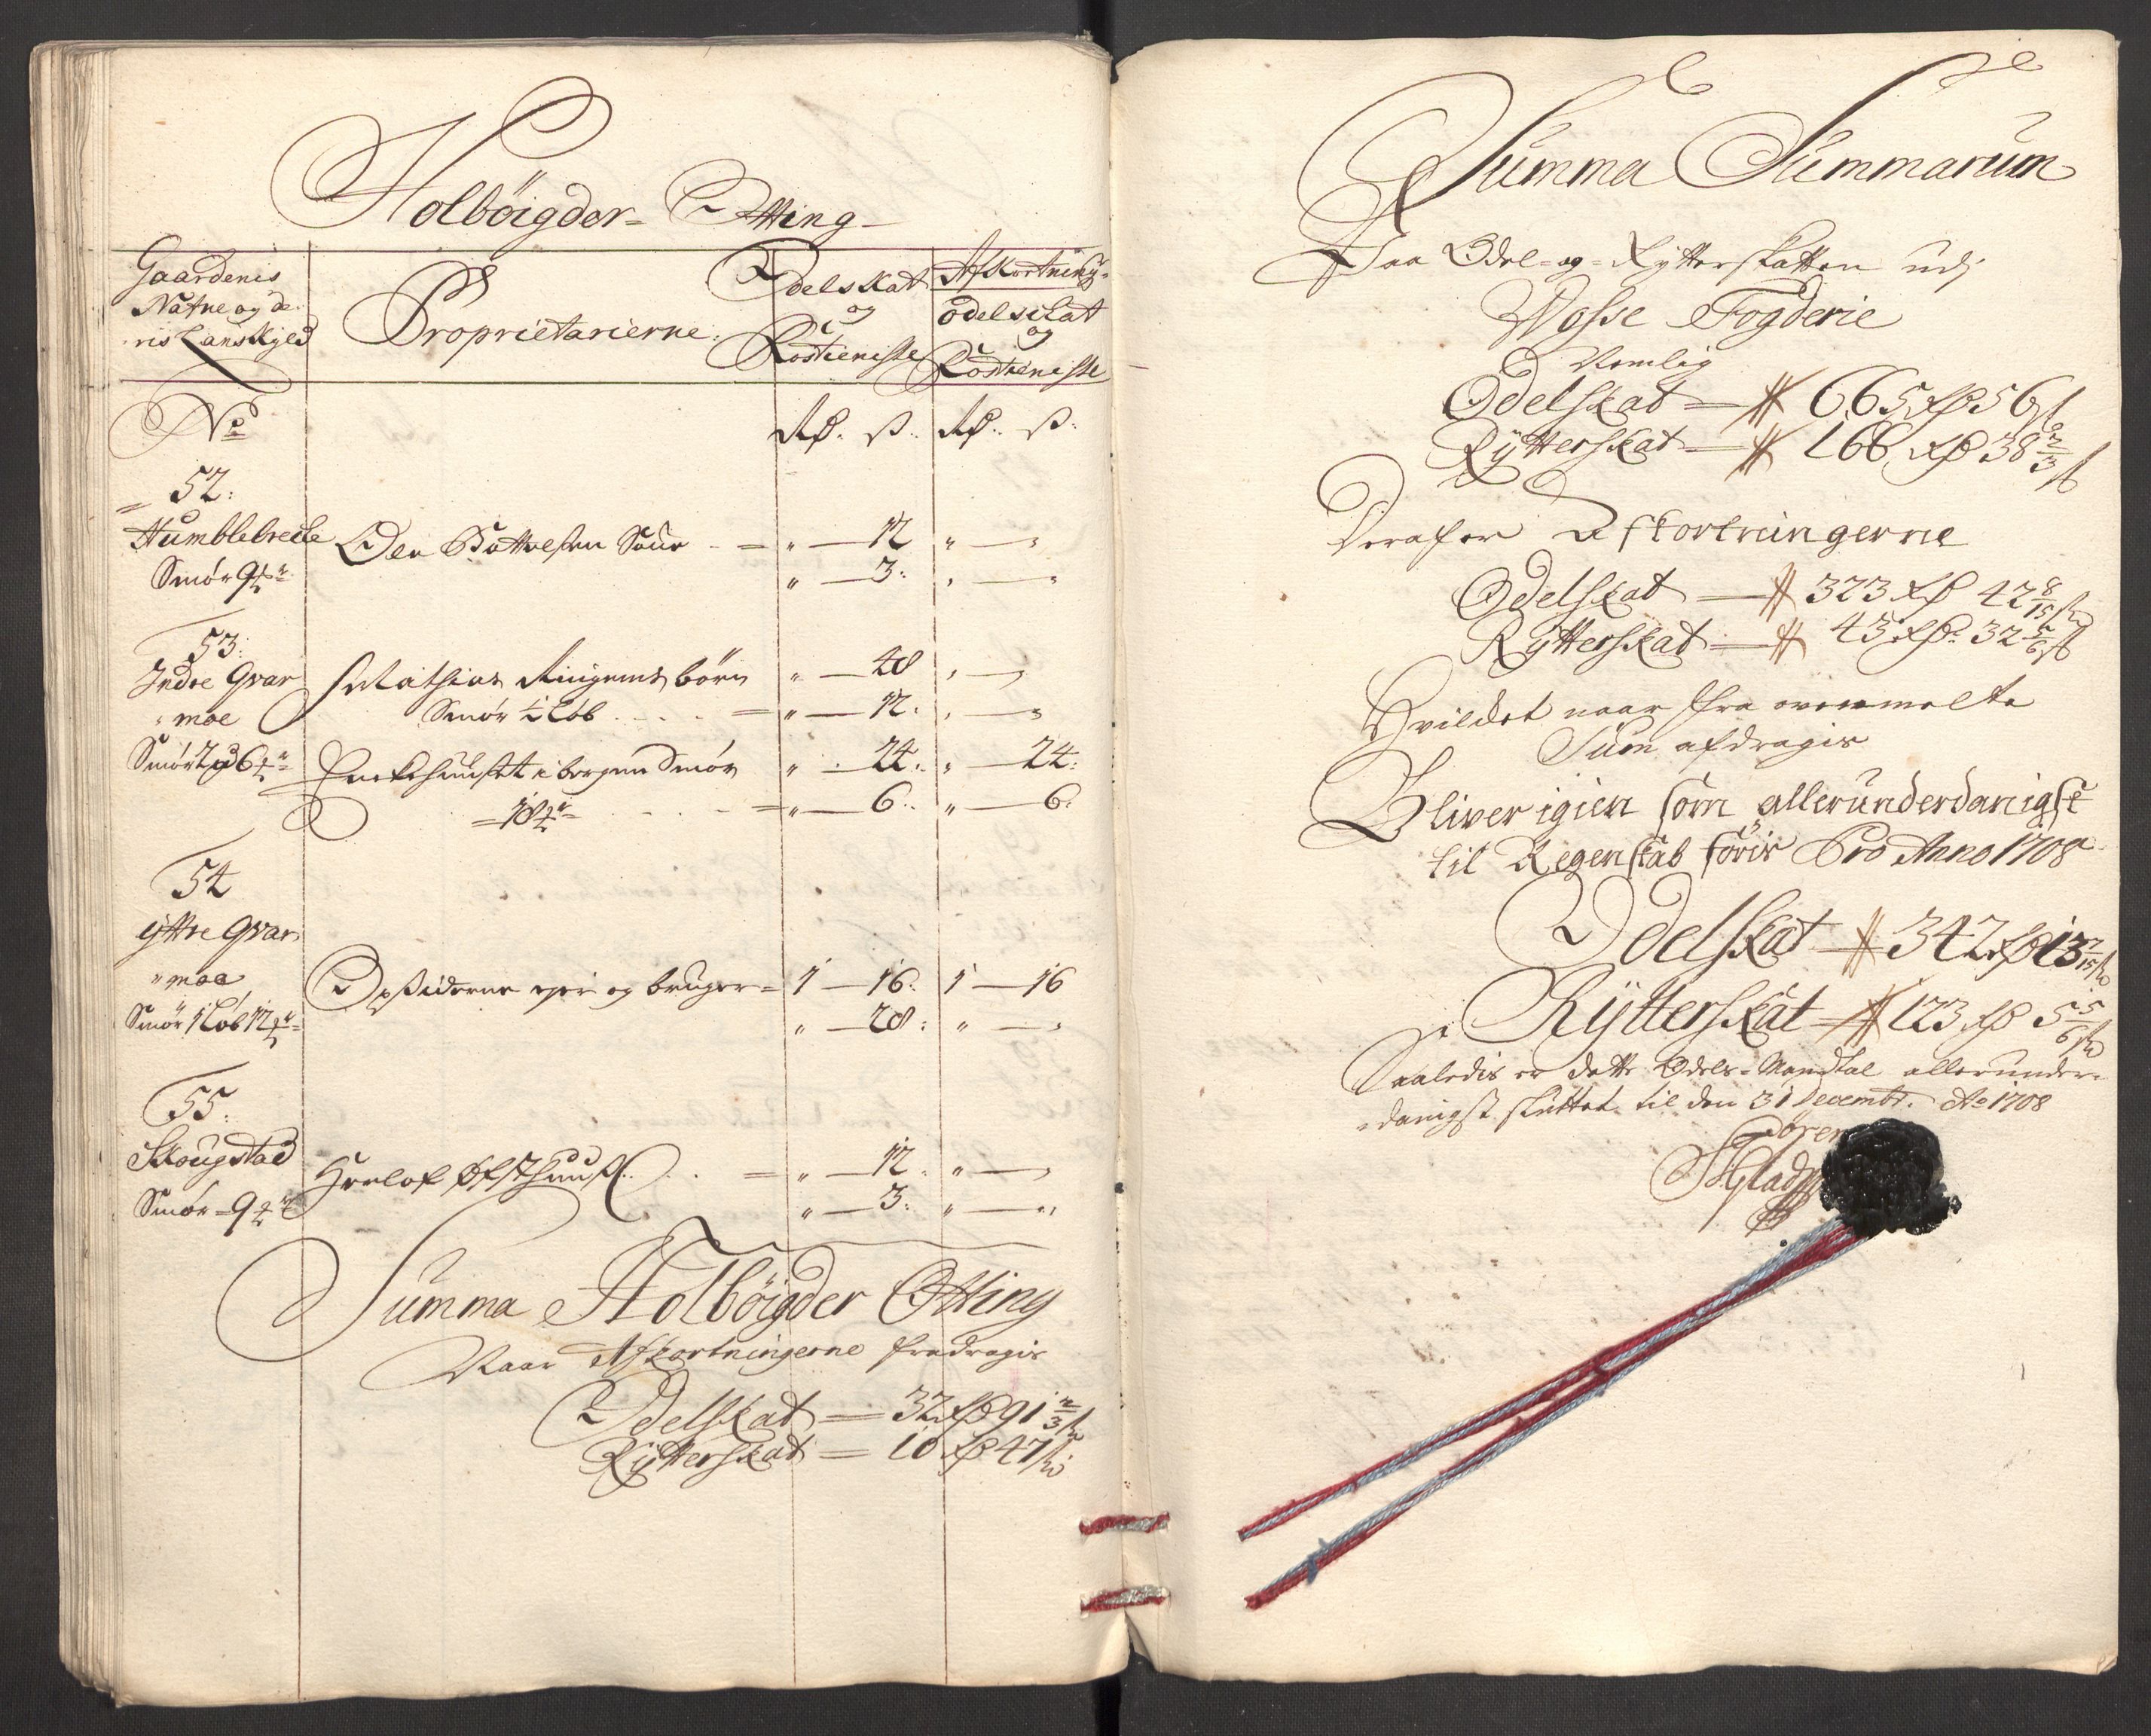 Holböigder- Otting
Gaardenis
Nafne og de-
ris Landskyld
Proprietarierne
Odelskat
og
Rostieniste
Afkortning-
odelskat
og
Rostieniste
No
Rd. s. Rd. s.
52:
Humblebrecke
Smör 9
Ole Sour " — 12 " — "
" — 3: " — "
53:
Indre Qvar
"moe
Mathias Ringens börn " — 48 " — "
Smör ½ Löb " — 12: " — "
i bergen Smör " — 24: " — 24:
18 " — 6: " — 6:
54
ÿttre Qvar
"moe
Smör 1 Löb 12
Opsiderne eyer og bruger 1 — 16: 1 — 16
" — 28: " — "
55:
Skougstad
Smör 9
Herlof " — 12: " — "
" — 3: " — "
Summa Holböigder Otting
Naar Afkortningerne fradragis
Odelskat — 32 Rd 91 2/3 s
Rÿtterskat — 10 Rd 47 s
Summa Summarum
Paa Odel- og Rytterskatten udj
Wosse Fogderie
Nemlig
Odelskat — 665 Rd 56 s
Rÿtterskat — 166 Rd 38 2/3 s
Deraf er Afkortningerne
Odelskat — 323 Rd 42 8/15 s
Rÿtterskat — 43 Rd 32 5/6 s
Hvilcket naar fra ovenmelte
Sum afdragis
Bliver igien som allerunderdanigst
til Regenskab föris Pro Anno 1708
Odelskat — 342 Rd 13 7/15 s
Rÿtterskat — 123 Rd 5 5/6 s
Saaledis er dette Odels-Mandtal allerunder-
danigst sluttet til den 31 Decembr. Ao 1708
Sören